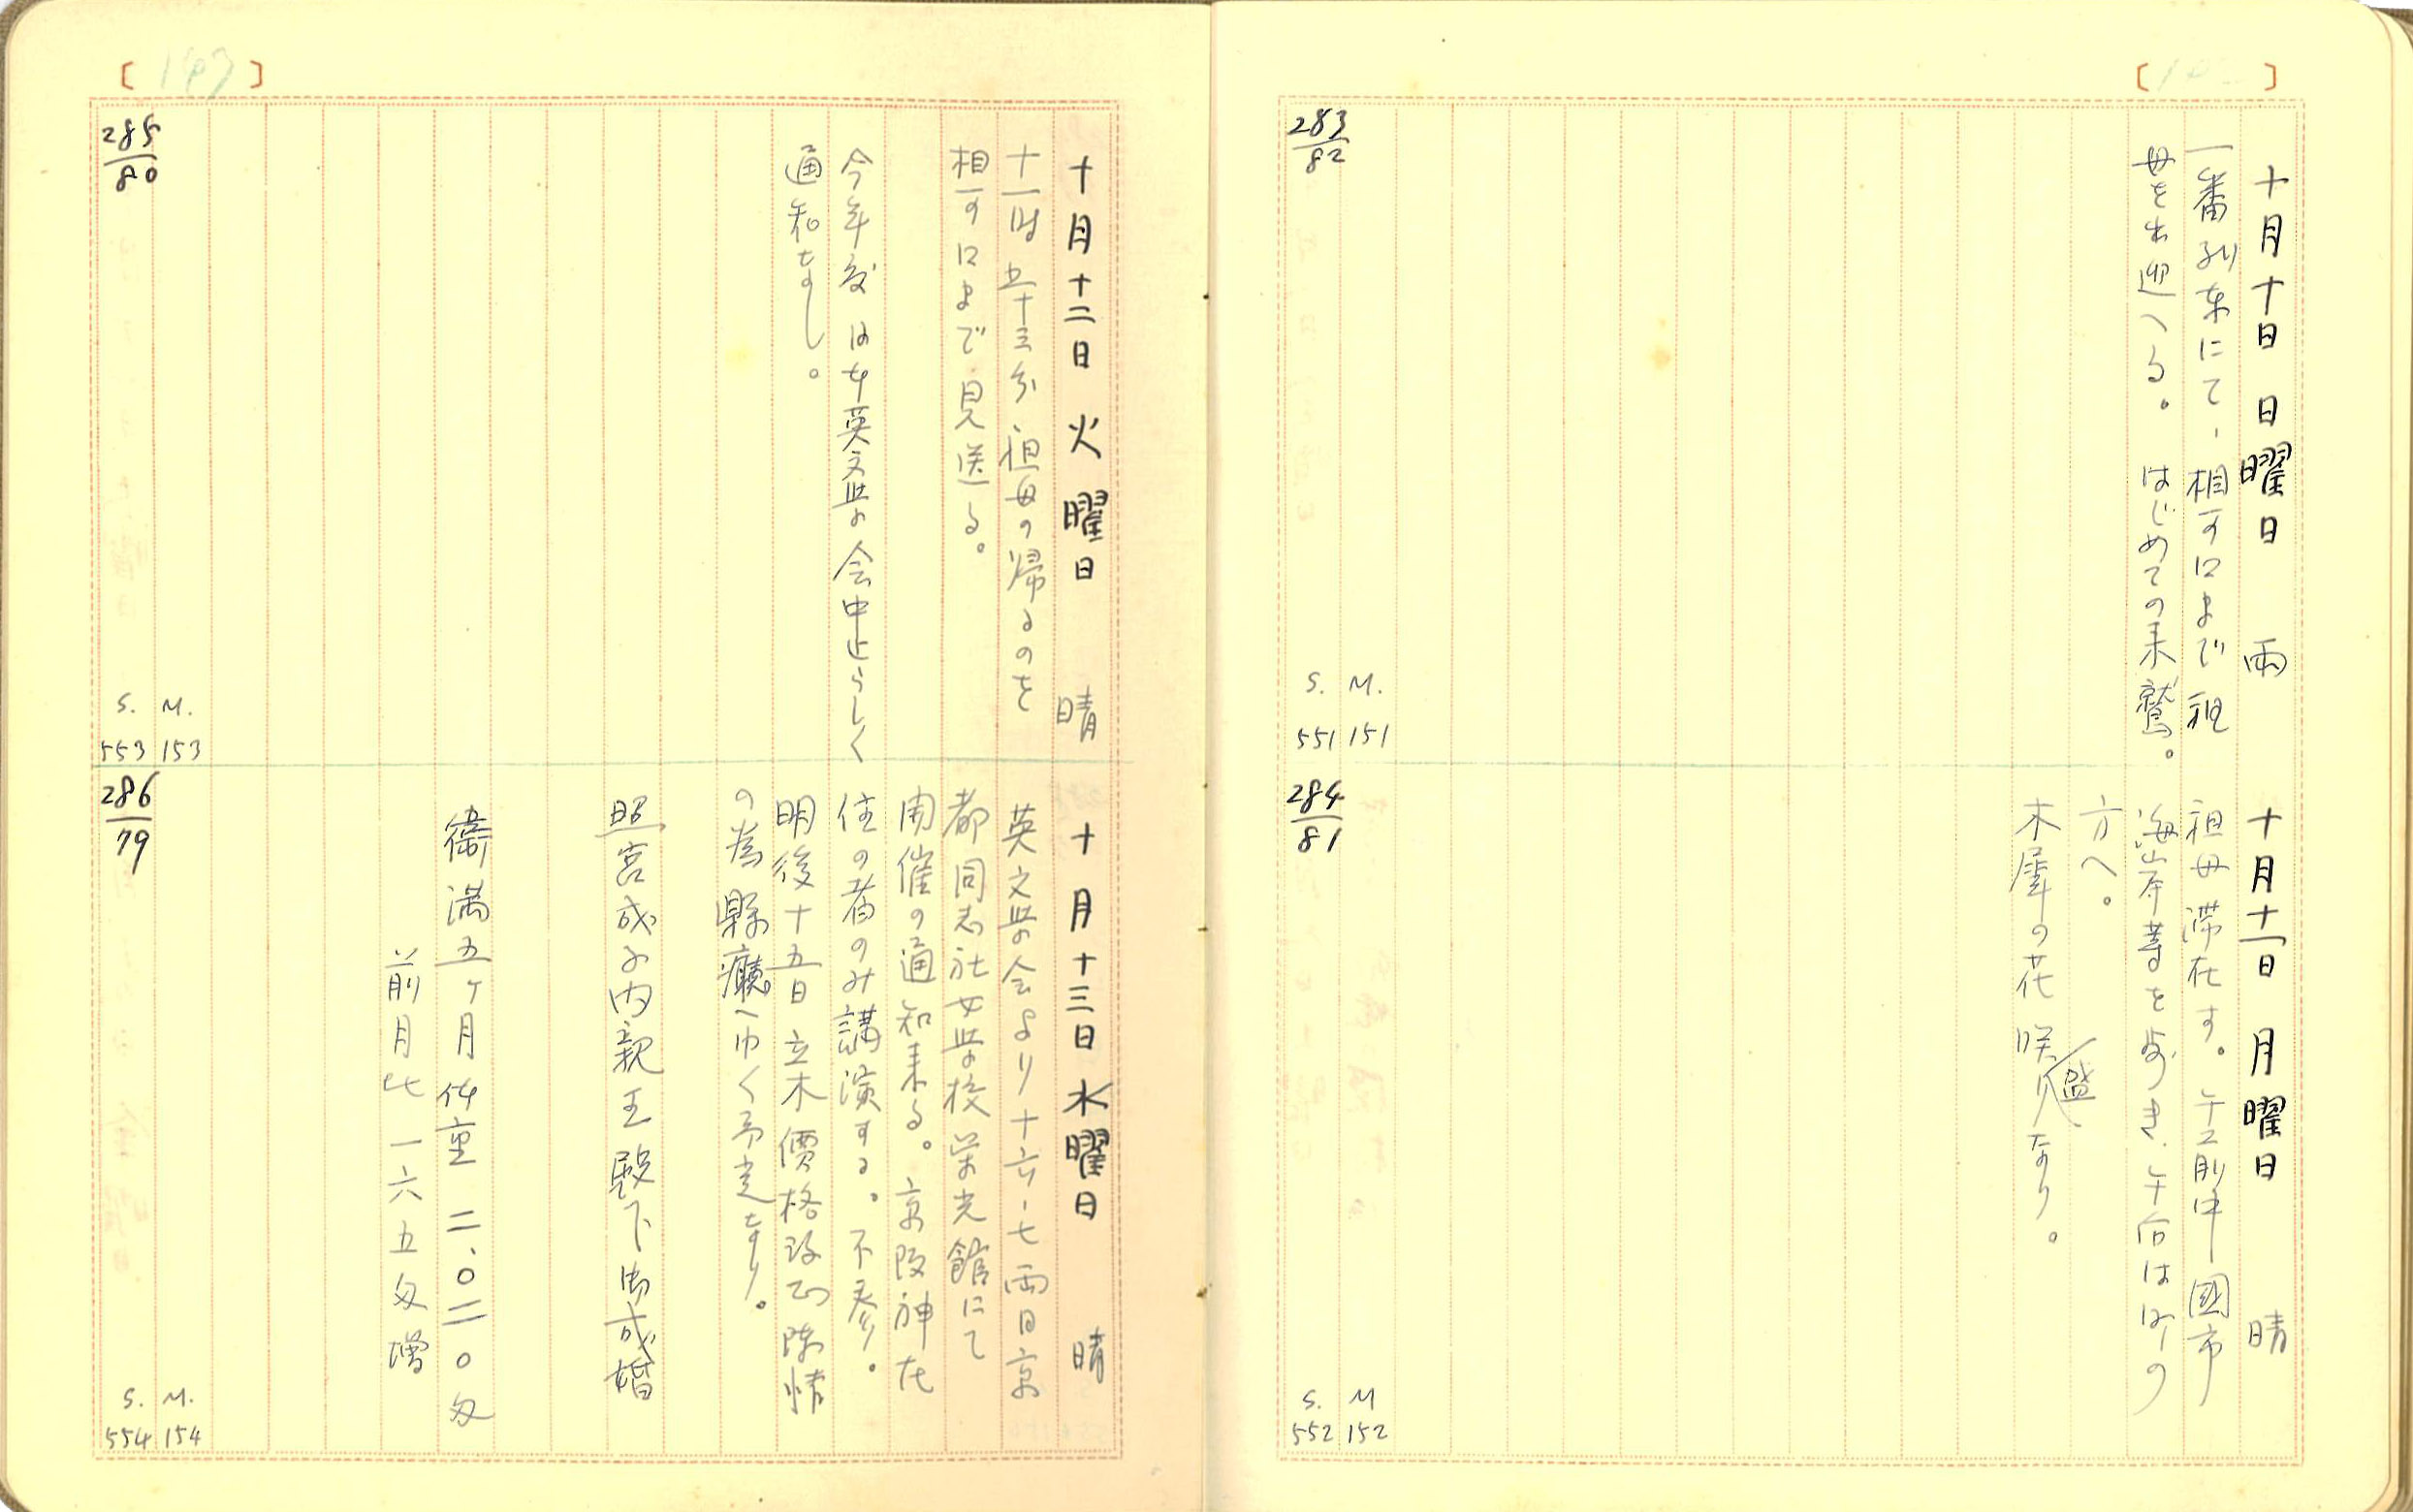 十月十日 日曜日 雨
一番列車にて、相可口まで祖
母を出迎へる。はじめての来鷲。
283
82
S. M.
551 151
十月十一日 月曜日 晴
祖母滞在す。午前中國市
海岸等を歩き、午后は町の
方へ。
木犀の花咲盛りなり。
284
81
S. M
552 152
[147]
十月十二日 火曜日 晴
十一時五十三分、祖母の帰るのを
相可口まで見送る。
今年度は女英文学会中止らしく
通知なし。
285
80
S. M.
553 153
十月十三日 水曜日 晴
英文学会より十六、七両日京
都同志社女学校栄光館にて
開催の通知来る。京阪神在
住の者のみ講演する。不参。
明後十五日立木價格改正陳情
の為縣廳へゆく予定なり。
照宮成子内親王殿下御成婚
衞満五ヶ月体重 二、〇二〇匁
前月比 一六五匁増
286
79
S. M.
554 154